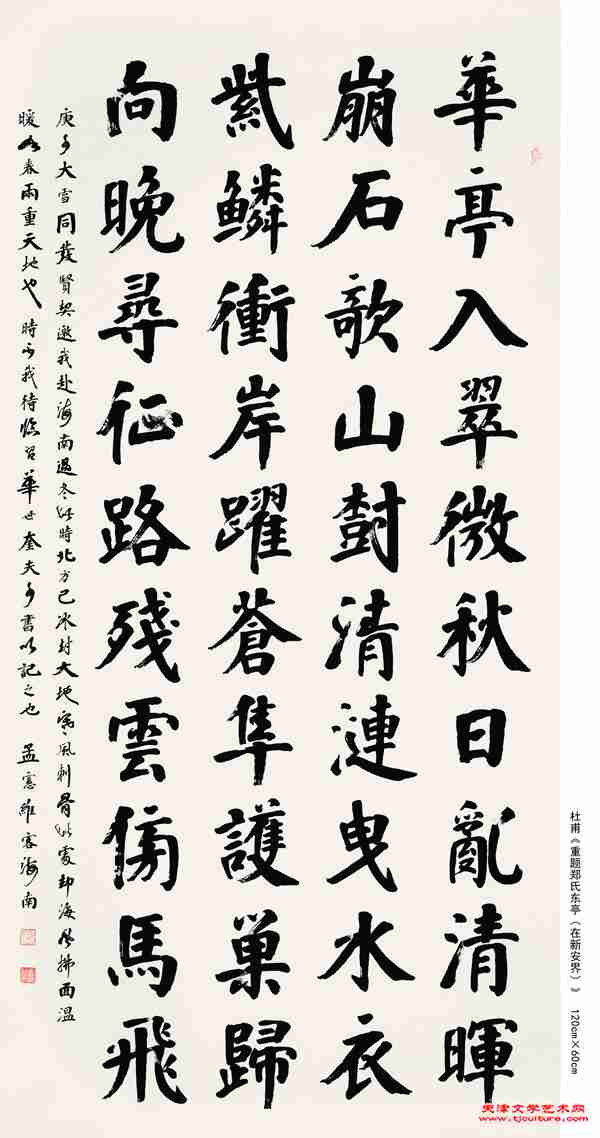 華亭入翠微秋日亂清暉
崩石欹山樹清漣曳水衣
紫鱗衝岸躍蒼隼護巢歸
向晚尋征路殘雲傍馬飛
庚子大雪同發賢契邀我赴海南過冬此時北方已冰封大地寒風刺骨此處却海風拂面溫
暖如春兩重天地也時不我待臨習華世奎夫子書以記之也孟憲維客海南
杜甫《重题郑氏东亭（在新安界）》 120cm×60cm
天津文学艺术网
www.tjculture.com